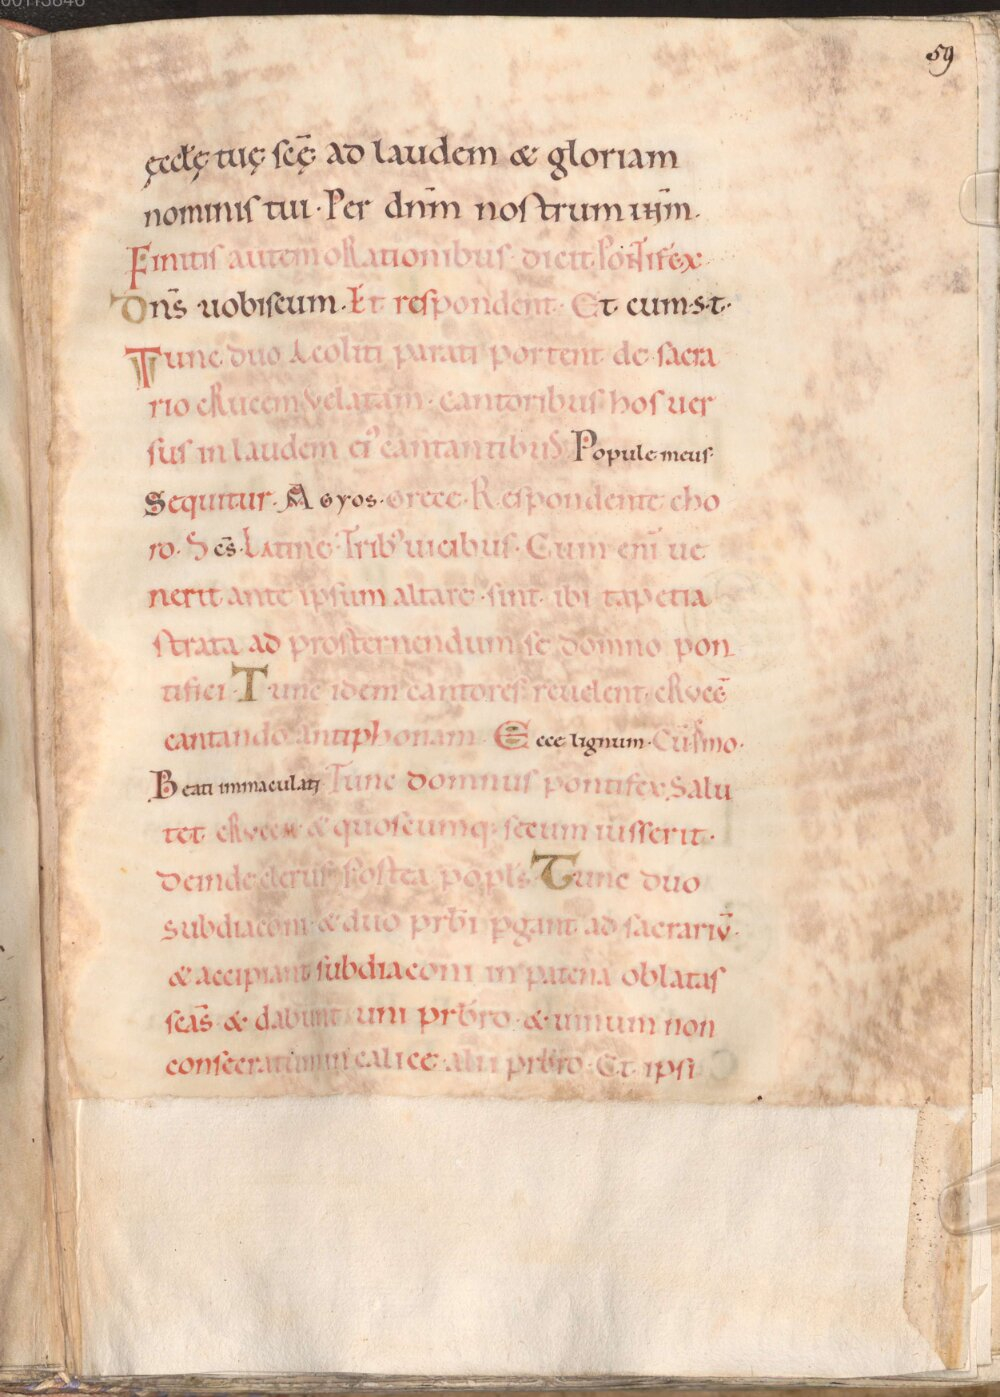 59
ęcclę tuę scę̄ ad laudem & gloriam
nominis tui · Per dnm̄ nostrum ihm̄ ·
Finitis autem oRationibus dicit Pontifex
Dns̄ uobiscum · Et respondent · Et cum · s · t ·
Tunc duo Acoliti parati portent de sacra
rio cRucem velatam · cantoribus hos uer
sus in laudem ei᾽ cantantibus Popule meus ·
Sequitur · Agyos · Grece · Respondente cho
ro · Scs̄ · Latine · Trib᾽ uicibus · Cum eni᾽ ue
nerit ante ipsum altare · sint ibi tapetia
strata ad prosternendum se domno pon
tifici · Tunc idem cantores reuelent cRvcē
cantando antiphonam · Ecce lignum ·
Beati immaculati Tunc domnus pontifex Salu
tet cRvcem & quoscumq; secum iusserit ·
Deinde clerus · Postea popls̄ Tunc duo
subdiaconi & duo prbr̄i pgant ad sacrariv̄ ·
& accipiant subdiaconi in patena oblatas
scas̄ & dabunt uni prbr̄o · & uinum non
consecratum in calice alii prbr̄o · Et ipsi